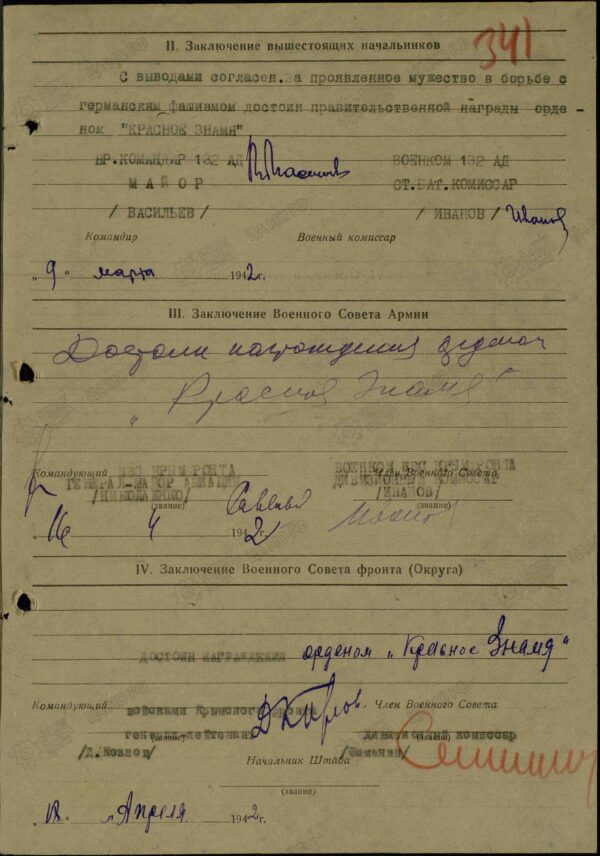 341
II. Заключение вышестоящих начальников
С выводами согласен. за проявленное мужество в борьбе с
германским фашизмом достоин правительственной награды орде-
ном "КРАСНОЕ ЗНАМЯ"
ВР.КОМАНДИР 132 АД ВОЕНКОМ 132 АД
МАЙОР СТ.БАТ.КОМИССАР
/ВАСИЛЬЕВ/ /ИВАНОВ/ Иванов
Командир Военный комиссар
„9" марта 1942 г.
III. Заключение Военного Совета Армии
Достоин награждения орденом
"Красное Знамя"
Командующий ВВС КРЫМФРОНТА ВОЕНКОМ ВВС КРЫМФРОНТА
Член Военного Совета
ГЕНЕРАЛ-МАЙОР АВИАЦИИ ДИВИЗИОННЫЙ КОМИССАР
/НИКОЛАЕНКО/ /ИВАНОВ/
(звание) (звание)
16 4 1942
IV. Заключение Военного Совета фронта (Округа)
ДОСТОИН НАГРАЖДЕНИЯ орденом „Красное Знамя"
Командующий Член Военного Совета
войсками Крымского фронта
генерал-лейтенант дивизионный комиссар
/Д.Козлов/ /Шаманин/
Начальник Штаба
(звание)
Апреля 1942 г.